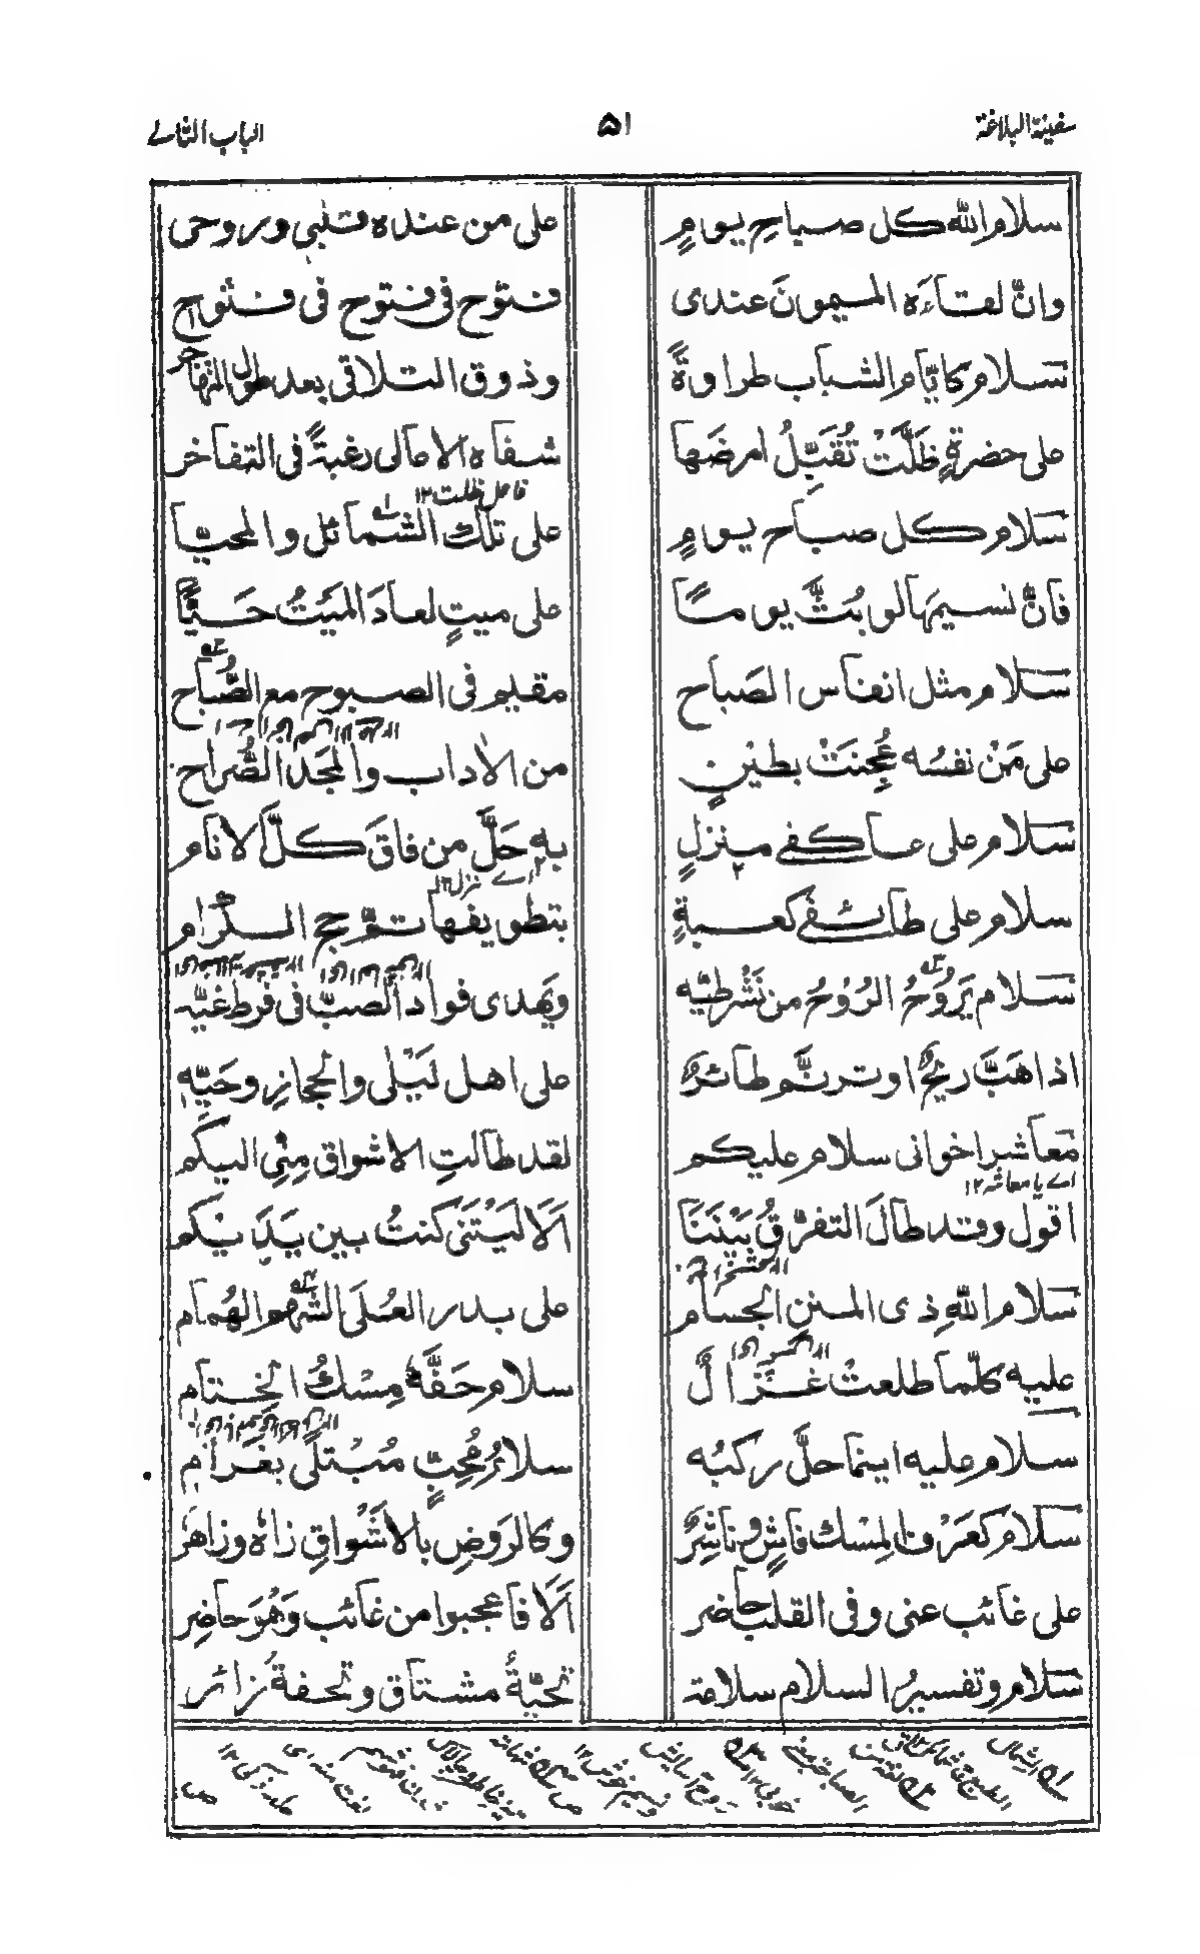 سفينة البلاغة ۵۱ الباب الثانے
سلام الله كل صباحِ يومٍ على من عنده قلبي وروحى
وانَّ لقاءَه الميمونَ عندى فتوح فى فتوح فى فتوح
سلام كايّام الشباب طراوةً وذوق التلاقى بعد طول التهاجر
على حضرةٍ ظلَّتْ تُقَبِّلُ ارضَها شفاه الامالى رغبةً فى التفاخر
فاعل ظلت ١٢
سلام كل صباح يومٍ على تلك الشمائل والمحيّا
فانَّ نسيمَها لو بُثَّ يومًا على ميتٍ لعادَ الميَتُ حَيًّا
سلام مثل انفاس الصَباح مقيم فى الصبوح مع الصُّباح
على مَنْ نفسُه عُجِنَتْ بطينٍ من الاداب والمجَد الصُّراح
سلام على عاكفے منزلٍ به حَلَّ من فاقَ كلَّ الانام
اے نزل ١٢
سلام على طائفے كعبةٍ بتطويفها تمَّ حج الكرام
سلام يَرُوحُ الرُوْحُ من نَشْرِ طيّه ويَهدى فواد الصبّ فى فرط غيّه
اذا هَبَّ ريحٌ او ترنَّم طائرٌ على اهل لَيْلى والحجازِ وحَيّه
مَعاشر اخوانى سلام عليكم لقد طالتِ الاشواق مِنّى اليكم
اے يا معاشر ١٢
اقول وقد طالَ التفرّقُ بَيْنَنَا اَلَا لَيْتَنى كنتُ بين يَدَيْكم
سلام اللهِ ذى المننِ الجسام على بدر العُلَى الشَّهم الهُمام
عليه كلّما طلعتْ غَزالٌ سلام حَفَّهٗ مِسْكُ الختام
سلام عليه اينما حلَّ ركبُه سلامُ مُحِبٍّ مُبْتلًى بغَرام
سلام كعَرْف المِسك فاشٍ وناشِرٌ وكالروضِ بالاشْواقِ زاهٍ وزاهرُ
على غائب عنى وفى القلب حاضر اَلَا فاعجبوا من غائب وَهُوَ حاضِر
سلام وتفسيرُ السلام سلامة تحيّةُ مشتاق وتحفةُ زائر